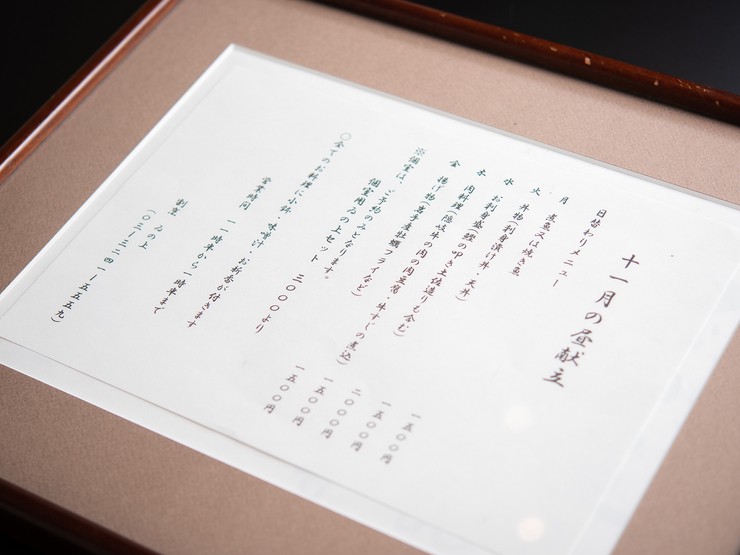 十一月の昼献立
日替わりメニュー
月 煮魚又は焼き魚 一五〇〇円
火 丼物(刺身漬け丼・天丼) 一五〇〇円
水 お刺身盛(鰹の叩き土佐造りも含む) 二〇〇〇円
木 肉料理(隠岐牛の肉の肉豆腐・牛すじの煮込) 一五〇〇円
金 揚げ物(岩手産牡蠣フライなど) 一五〇〇円
※個室は、ご予約のみとなります。
個室用ゐの上セット 三〇〇〇より
〇全てのお料理に小鉢・味噌汁・お新香が付きます
営業時間 一一時半から一時半まで
割烹 ゐの上
(〇三ー三二四一ー五五五九)